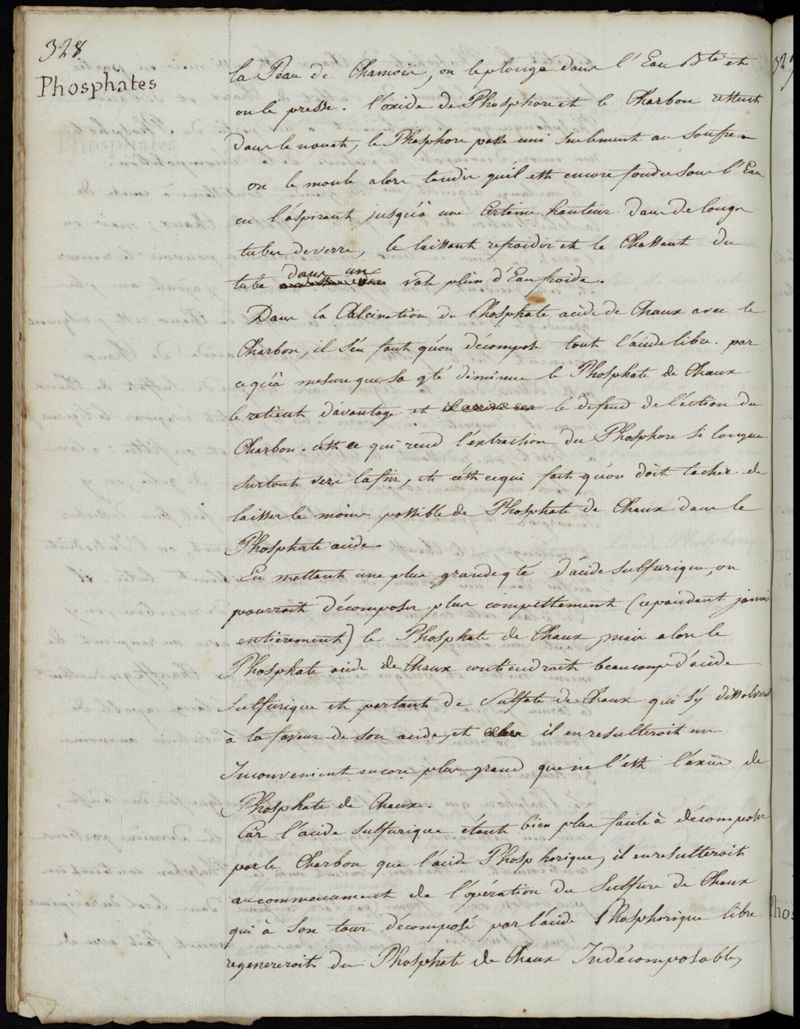 328
Phosphates
la Peau de Chamois, on le plonge dans l'Eau Bte et
on le presse. l'oxide de Phosphore et le Charbon restent
dans le nouet, le Phosphore passe uni seulement au Soufre
on le moule alors tandis qu'il est encore fondu sous l'Eau
en l'aspirant jusqu'à une Certaine hauteur dans de longs
tubes de verre, le laissant refroidir et le Chassant du
tube dans un vase plein d'Eau froide.
Dans la Calcination du Phosphate acide de Chaux avec le
Charbon, il s'en faut qu'on décompose tout l'acide libre. par
ce qu'à mesure que sa qté diminue le Phosphate de Chaux
le retient d'avantage et le défend de l'action du
Charbon. c'est ce qui rend l'extraction du Phosphore si longue
surtout vers la fin, et c'est ce qui fait qu'on doit tacher de
laisser le moins possible de Phosphate de Chaux dans le
Phosphate acide
En mettant une plus grande qté d'acide sulfurique, on
pourroit décomposer plus complettement (cependant jamais
entièrement) le Phosphate de Chaux, mais alors le
Phosphate acide de Chaux contiendroit beaucoup d'acide
sulfurique et partant de Sulfate de Chaux qui s'y dissolveroit
à la faveur de son acide, et il en resulteroit un
Inconvenient encore plus grand que ne l'est l'excès de
Phosphate de Chaux.
Car l'acide sulfurique étant bien plus facile à décomposer
par le Charbon que l'acide Phosphorique, il en resulteroit
au commencement de l'opération du Sulfure de Chaux
qui à son tour décomposé par l'acide Phosphorique libre
regenereroit du Phosphate de Chaux Indécomposable,